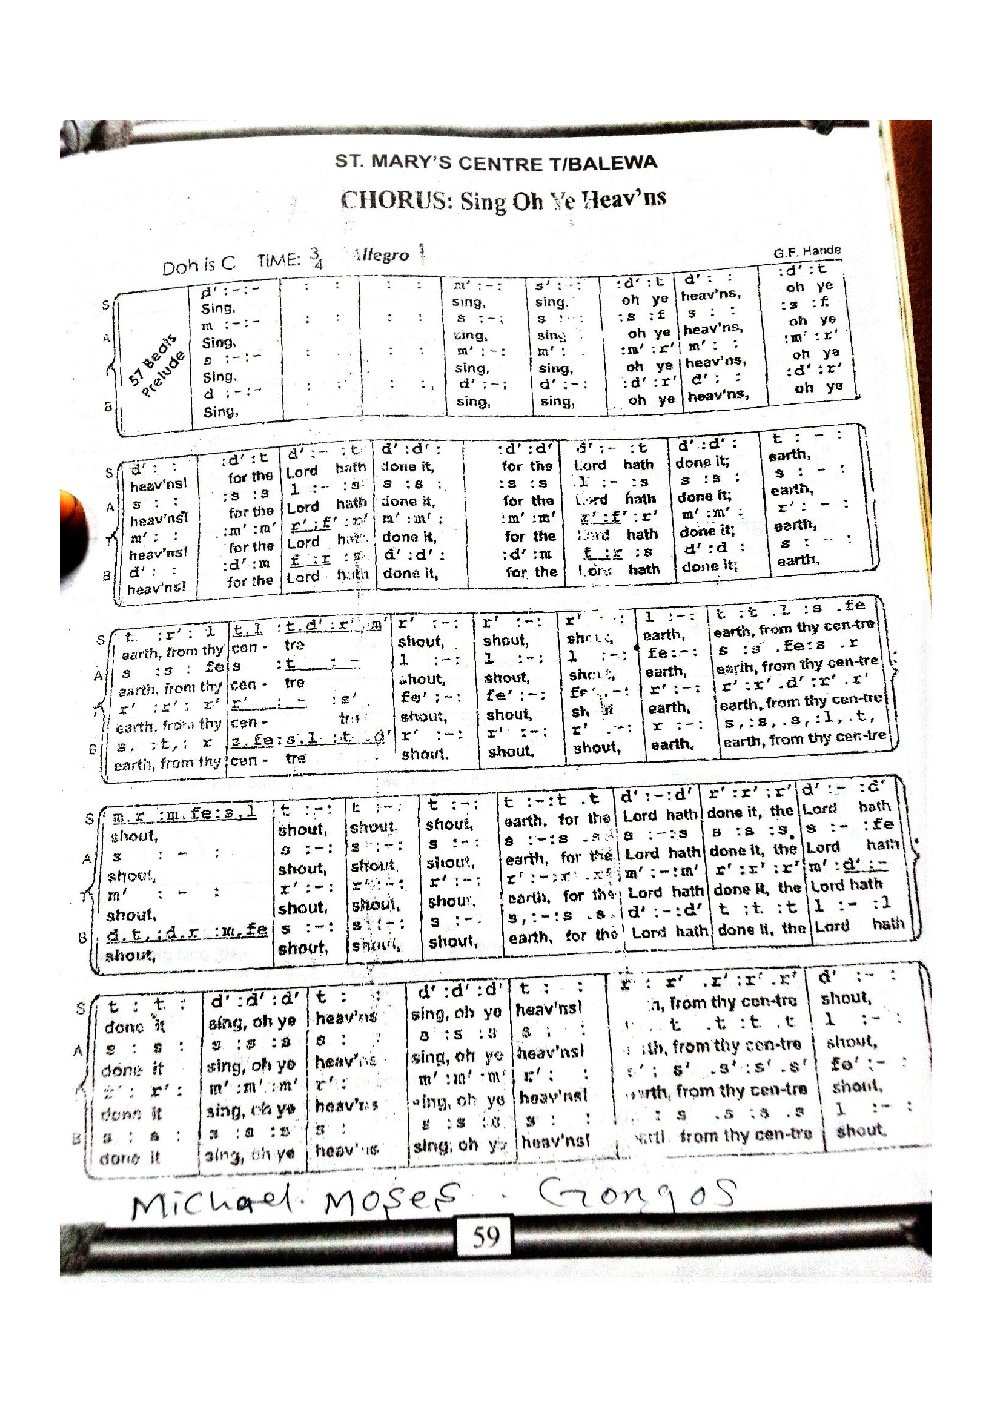 ST. MARY'S CENTRE T/BALEWA
CHORUS: Sing Oh Ye Heav'ns
Doh is C TIME: 3/4 Allegro
G.F. Hande
57 Beats Prelude
S d' :-:- : : : : m' :-:- s' :-: :d' :t d' : : :d' :t
Sing, sing, sing. oh ye heav'ns, oh ye
A m :-:- : : : : s :-: s : : :s :f s : : :s :f
Sing, sing, sing oh ye heav'ns, oh ye
s :-:- : : : : m' :-: m' : :m' :r' m' : : :m' :r'
Sing, sing, sing, oh ye heav'ns, oh ye
B d :-:- : : : : d' :-: d' :-: :d' :r' d' : : :d' :r'
Sing, sing, sing, oh ye heav'ns, oh ye
S d' : : :d' :t d' :- :t d' :d' : :d' :d' d' :- :t d' :d' : t : - :
heav'ns! for the Lord hath done it, for the Lord hath done it; earth,
A s : : :s :s l :- :s s :s : :s :s l :- :s s :s : s : - :
heav'ns! for the Lord hath done it, for the Lord hath done it; earth,
T m' : : :m' :m' r' :f' :r' m' :m' : :m' :m' r' :f' :r' m' :m' : r' : - :
heav'ns! for the Lord hath done it, for the Lord hath done it; earth,
B d' : : :d' :m f :r :s d' :d' : :d' :m f :r :s d' :d : s : - :
heav'ns! for the Lord hath done it, for the Lord hath done it; earth.
S t :r' : l t.l :t.d' :r'.m' r' :-: r' :-: r' :-: l :-: t :t .l :s .fe
earth, from thy cen - tre shout, shout, shout, earth, earth, from thy cen-tre
A s :s : fe s :t : - l :-: l :-: l :-: fe:-: s :s .fe:s .r
earth. from thy cen - tre shout, shout, shout, earth, earth, from thy cen-tre
T r' :r' : r' r' : - :s' fe' :-: fe' :-: fe' :-: r' :-: r' :r' .d' :r' .r'
earth, from thy cen - tre shout, shout, sh earth, earth, from thy cen-tre
B s, :t, : r s.fe:s.l :t .d' r' :-: r' :-: r' :-: r :-: s,:s, .s,:l, .t,
earth, from thy cen - tre shout, shout, shout, earth. earth, from thy cen-tre
S m.r :m.fe:s.l t :-: t :-: t :-: t :-:t .t d' :-:d' r' :r' :r' d' :- :d'
shout, shout, shout. shout, earth, for the Lord hath done it, the Lord hath
A s : - : s :-: s :-: s :-: s :-:s .s s :-:s s :s :s s :- :fe
shout, shout, shout, shout, earth, for the Lord hath done it, the Lord hath
T m' : - : r' :-: r' :-: r' :-: r' :-:r' .r' m' :-:m' r' :r' :r' m' :d' :-
shout, shout, shout, shout. earth, for the Lord hath done it, the Lord hath
B d.t, :d.r :m.fe s :-: s :-: s :-: s,:-:s .s d' :-:d' t :t :t l :- :l
shout, shout, shout, shout, earth, for the Lord hath done it, the Lord hath
S t : t : d' :d' :d' t : : d' :d' :d' t : : r : r' .r' :r'.r' d' :- :
done it sing, oh ye heav'ns sing, oh ye heav'ns! from thy cen-tre shout,
A s : s : s :s :s s : : s :s :s s : : t .t :t .t l :- :
done it sing, oh ye heav'ns sing, oh ye heav'ns! from thy cen-tre shout,
r' : r' : m' :m' :m' r' : m' :m' :m' r' : : s' : s' .s' :s' .s' fe' :- :
done it sing, oh ye heav'ns sing, oh ye heav'ns! earth, from thy cen-tre shout,
B s : s : s :s :s s : s :s :s s : : : s .s :s .s l :- :
done it sing, oh ye heav'ns sing, oh ye heav'ns! from thy cen-tre shout.
Michael. Moses. Gongos
59